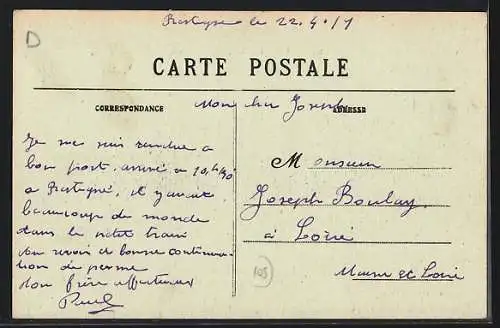 D
le 22.4.17
CARTE POSTALE
CORRESPONDANCE
ADRESSE
Mon cher Joseph
Je me suis rendue a
bon port. arrivé a 10h 1/2
a Restigné, il y avait
beaucoup de monde
dans le petit train
Au revoir et bonne continua-
tion de perme
Ton frère affectueux
Paul
Monsieur
Joseph Boulay
à Loiré
Maine et Loire